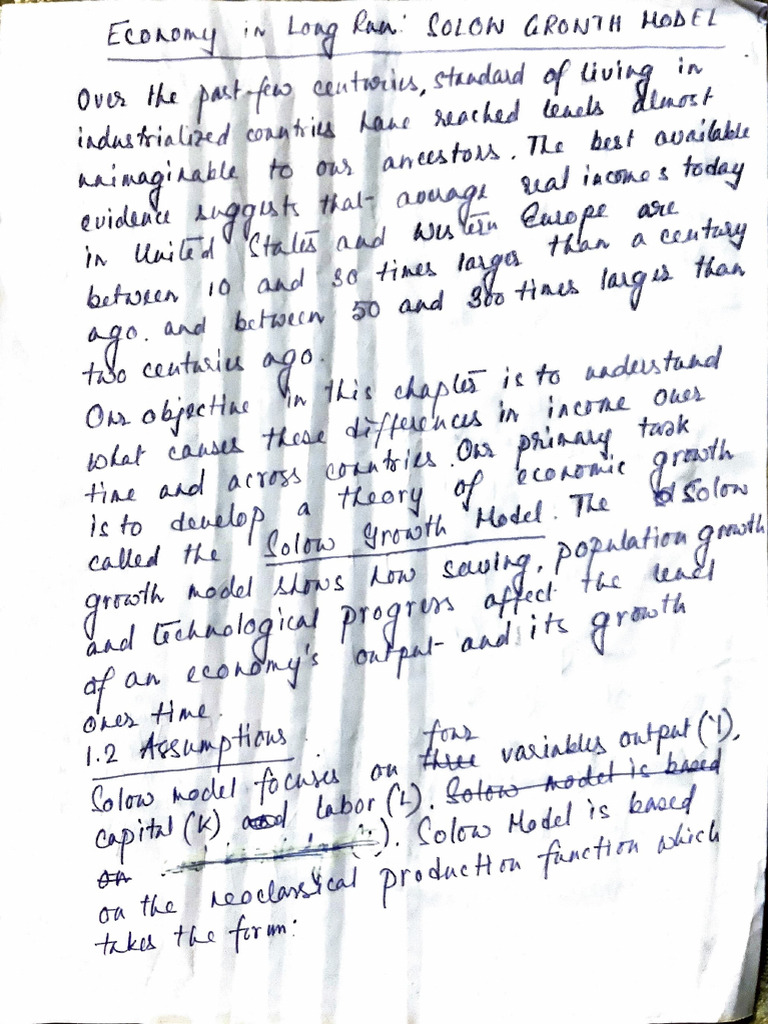 Economy in Long Run: SOLOW GROWTH MODEL
Over the past few centuries, standard of living in
industrialized countries have reached levels almost
unimaginable to our ancestors. The best available
evidence suggests that average real incomes today
in United States and Western Europe are
between 10 and 30 times larger than a century
ago. and between 50 and 300 times larger than
two centuries ago.
Our objective in this chapter is to understand
what causes these differences in income over
time and across countries. Our primary task
is to develop a theory of economic growth
called the Solow Growth Model. The Solow
growth model shows how saving, population growth
and technological progress affect the level
of an economy's output and its growth
over time.
1.2 Assumptions
four
Solow model focuses on three variables output (Y),
capital (K) and labor (L). Solow model is based
on ). Solow Model is based
on the neoclassical production function which
takes the form: